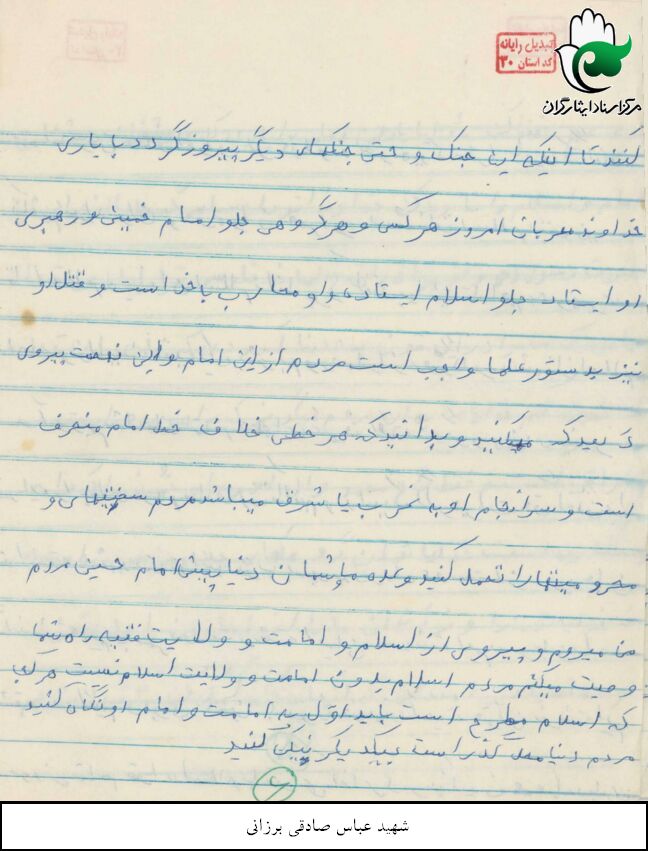 تبدیل رایانه
کد استان ۳۰
مرکز اسناد ایثارگران
کنند تا اینکه این جنگ و حتی جنگهای دیگر پیروز گردد با یاری
خداوند مهربان امروز هر کس و هر گروهی جلو امام خمینی و رهبری
او ایستاد جلو اسلام ایستاده و او محارب با خدا است و قتل او
نیز بدستور علما واجب است مردم از این امام و این نعمت پیروی
کنید و بدانید که هر خطی خلاف خط امام منحرف
است و سرانجام او به غرب یا شرق میباشد مردم سختیهای و
محرومیتها را تحمل کنید وعده ما و شما آن دنیا پیش امام حسین مردم
من میروم و پیروی از اسلام و امامت و ولایت فقیه راه شما
وصیت میکنم مردم اسلام بدون امامت و ولایت اسلام نیست هر کجا
که اسلام مطرح است باید اول به امامت و امام او نگاه کنید
مردم دنیا محل گذر است بیکدیگر نیکی کنید
شهید عباس صادقی برزانی